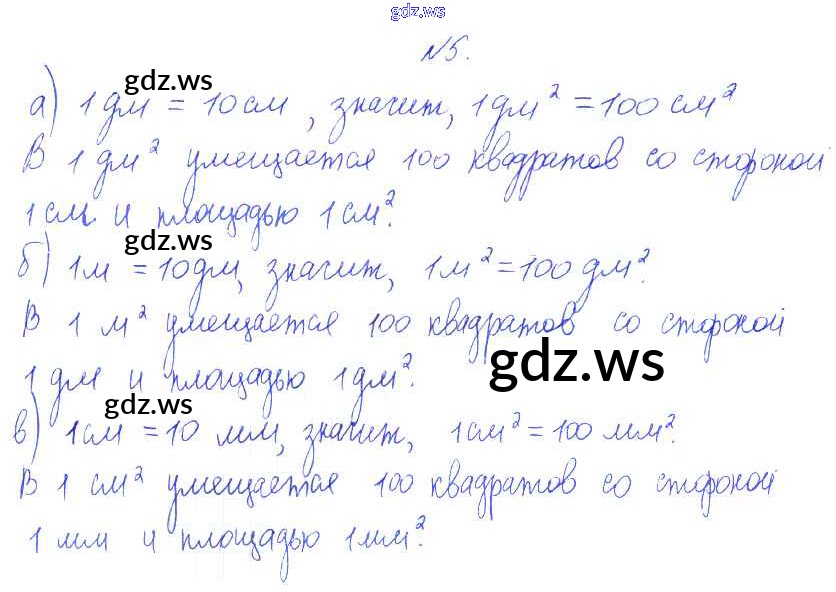 gdz.ws
№5.
gdz.ws
а) 1 дм = 10 см, значит, 1 дм² = 100 см²
В 1 дм² умещается 100 квадратов со стороной
1 см и площадью 1 см².
gdz.ws
б) 1 м = 10 дм, значит, 1 м² = 100 дм².
В 1 м² умещается 100 квадратов со стороной
gdz.ws
1 дм и площадью 1 дм².
gdz.ws
в) 1 см = 10 мм, значит, 1 см² = 100 мм².
В 1 см² умещается 100 квадратов со стороной
1 мм и площадью 1 мм².